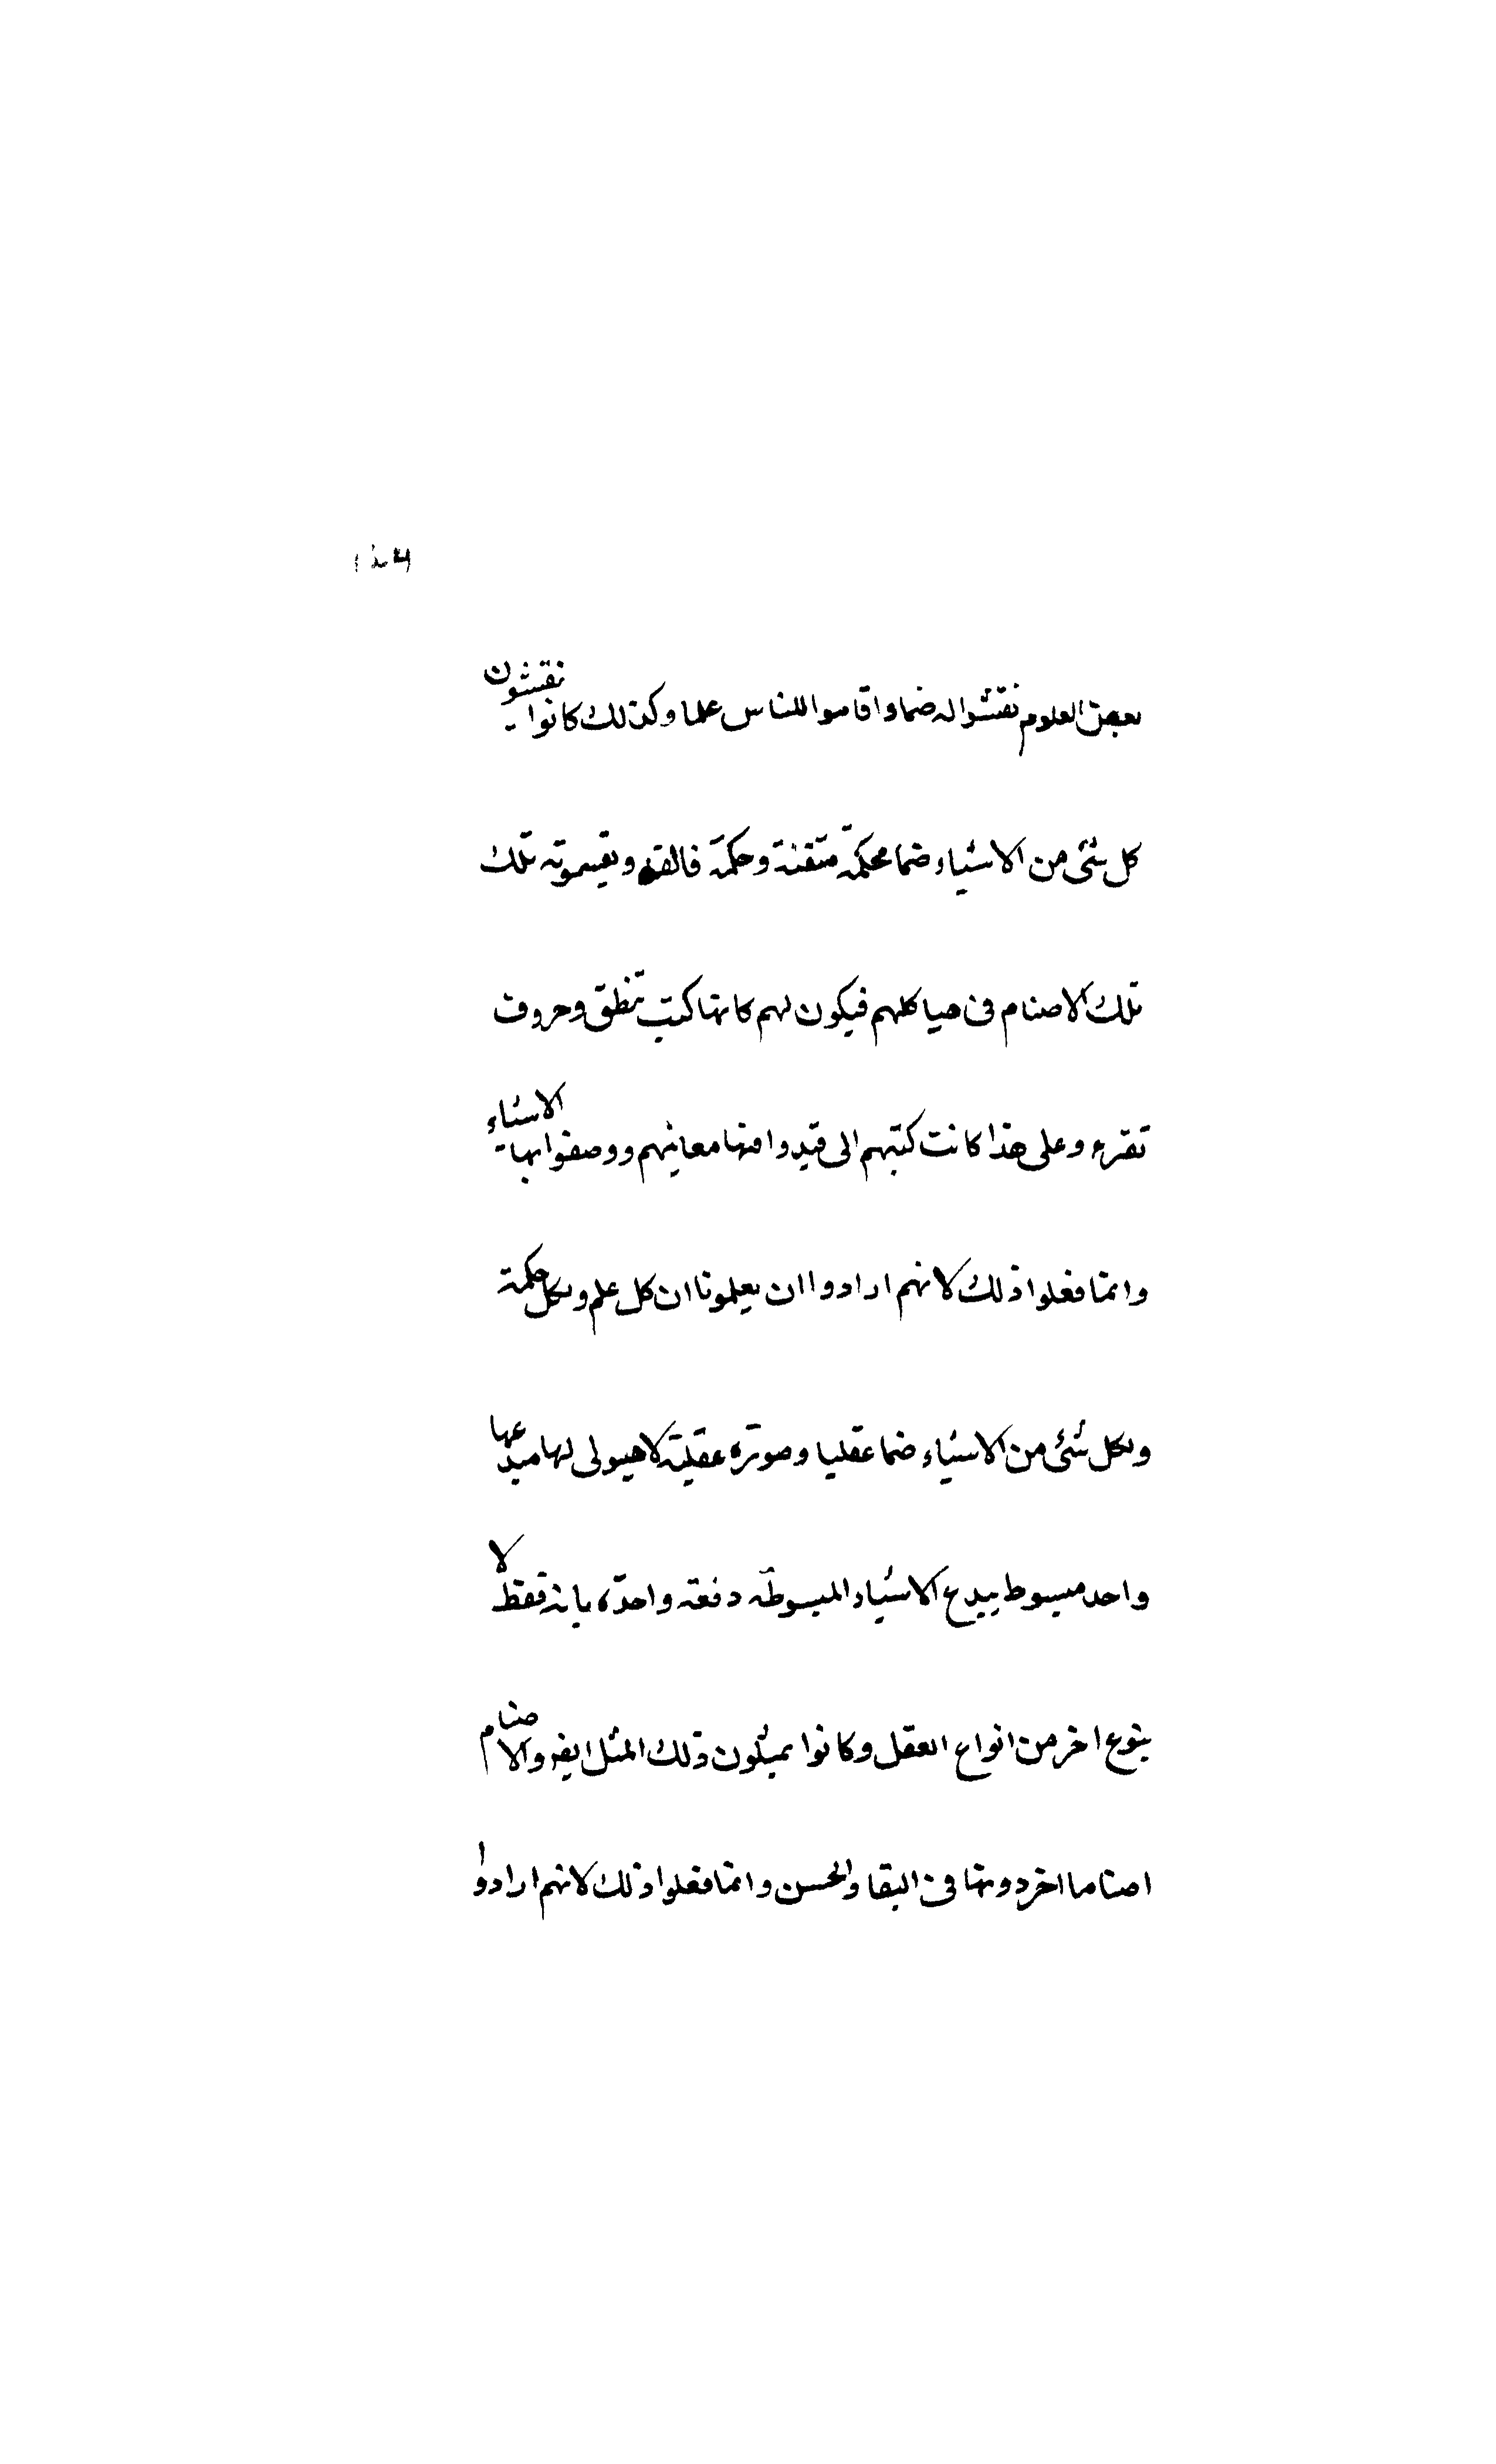 بعض العلوم نقشوا له ضما واقاموا للناس علما وكذلك كانوا ينقشون
كل شئ من الاشياء ضما محكمة متقنة وحكمة فالقه ويقيموته تلك
تلك الاصنام فى هيا كلهم فيكون لهم كانها كتب تنطق وحروف
تقرء وعلى هذا كانت كتبهم الى قيدوا فيها معانيهم ووصفوا بها الاشياء
وانما فعلوا ذلك لانهم ارادوا ان يعلمونا ان كل علم وكل حكمة
ولكل شئ من الاشياء ضما عقليا وصورة عقلية لا هيولى لها مبدعها
واحد مبسوط يبدع الاشياء المبسوطة دفعة واحدة بانه فقط لا
بنوع اخر من انواع العقل وكانوا يمثلون ذلك المثل ايضه والاصنام
اصناما اخر دونها فى البقا والحسن وانما فعلوا ذلك لانهم ارادوا